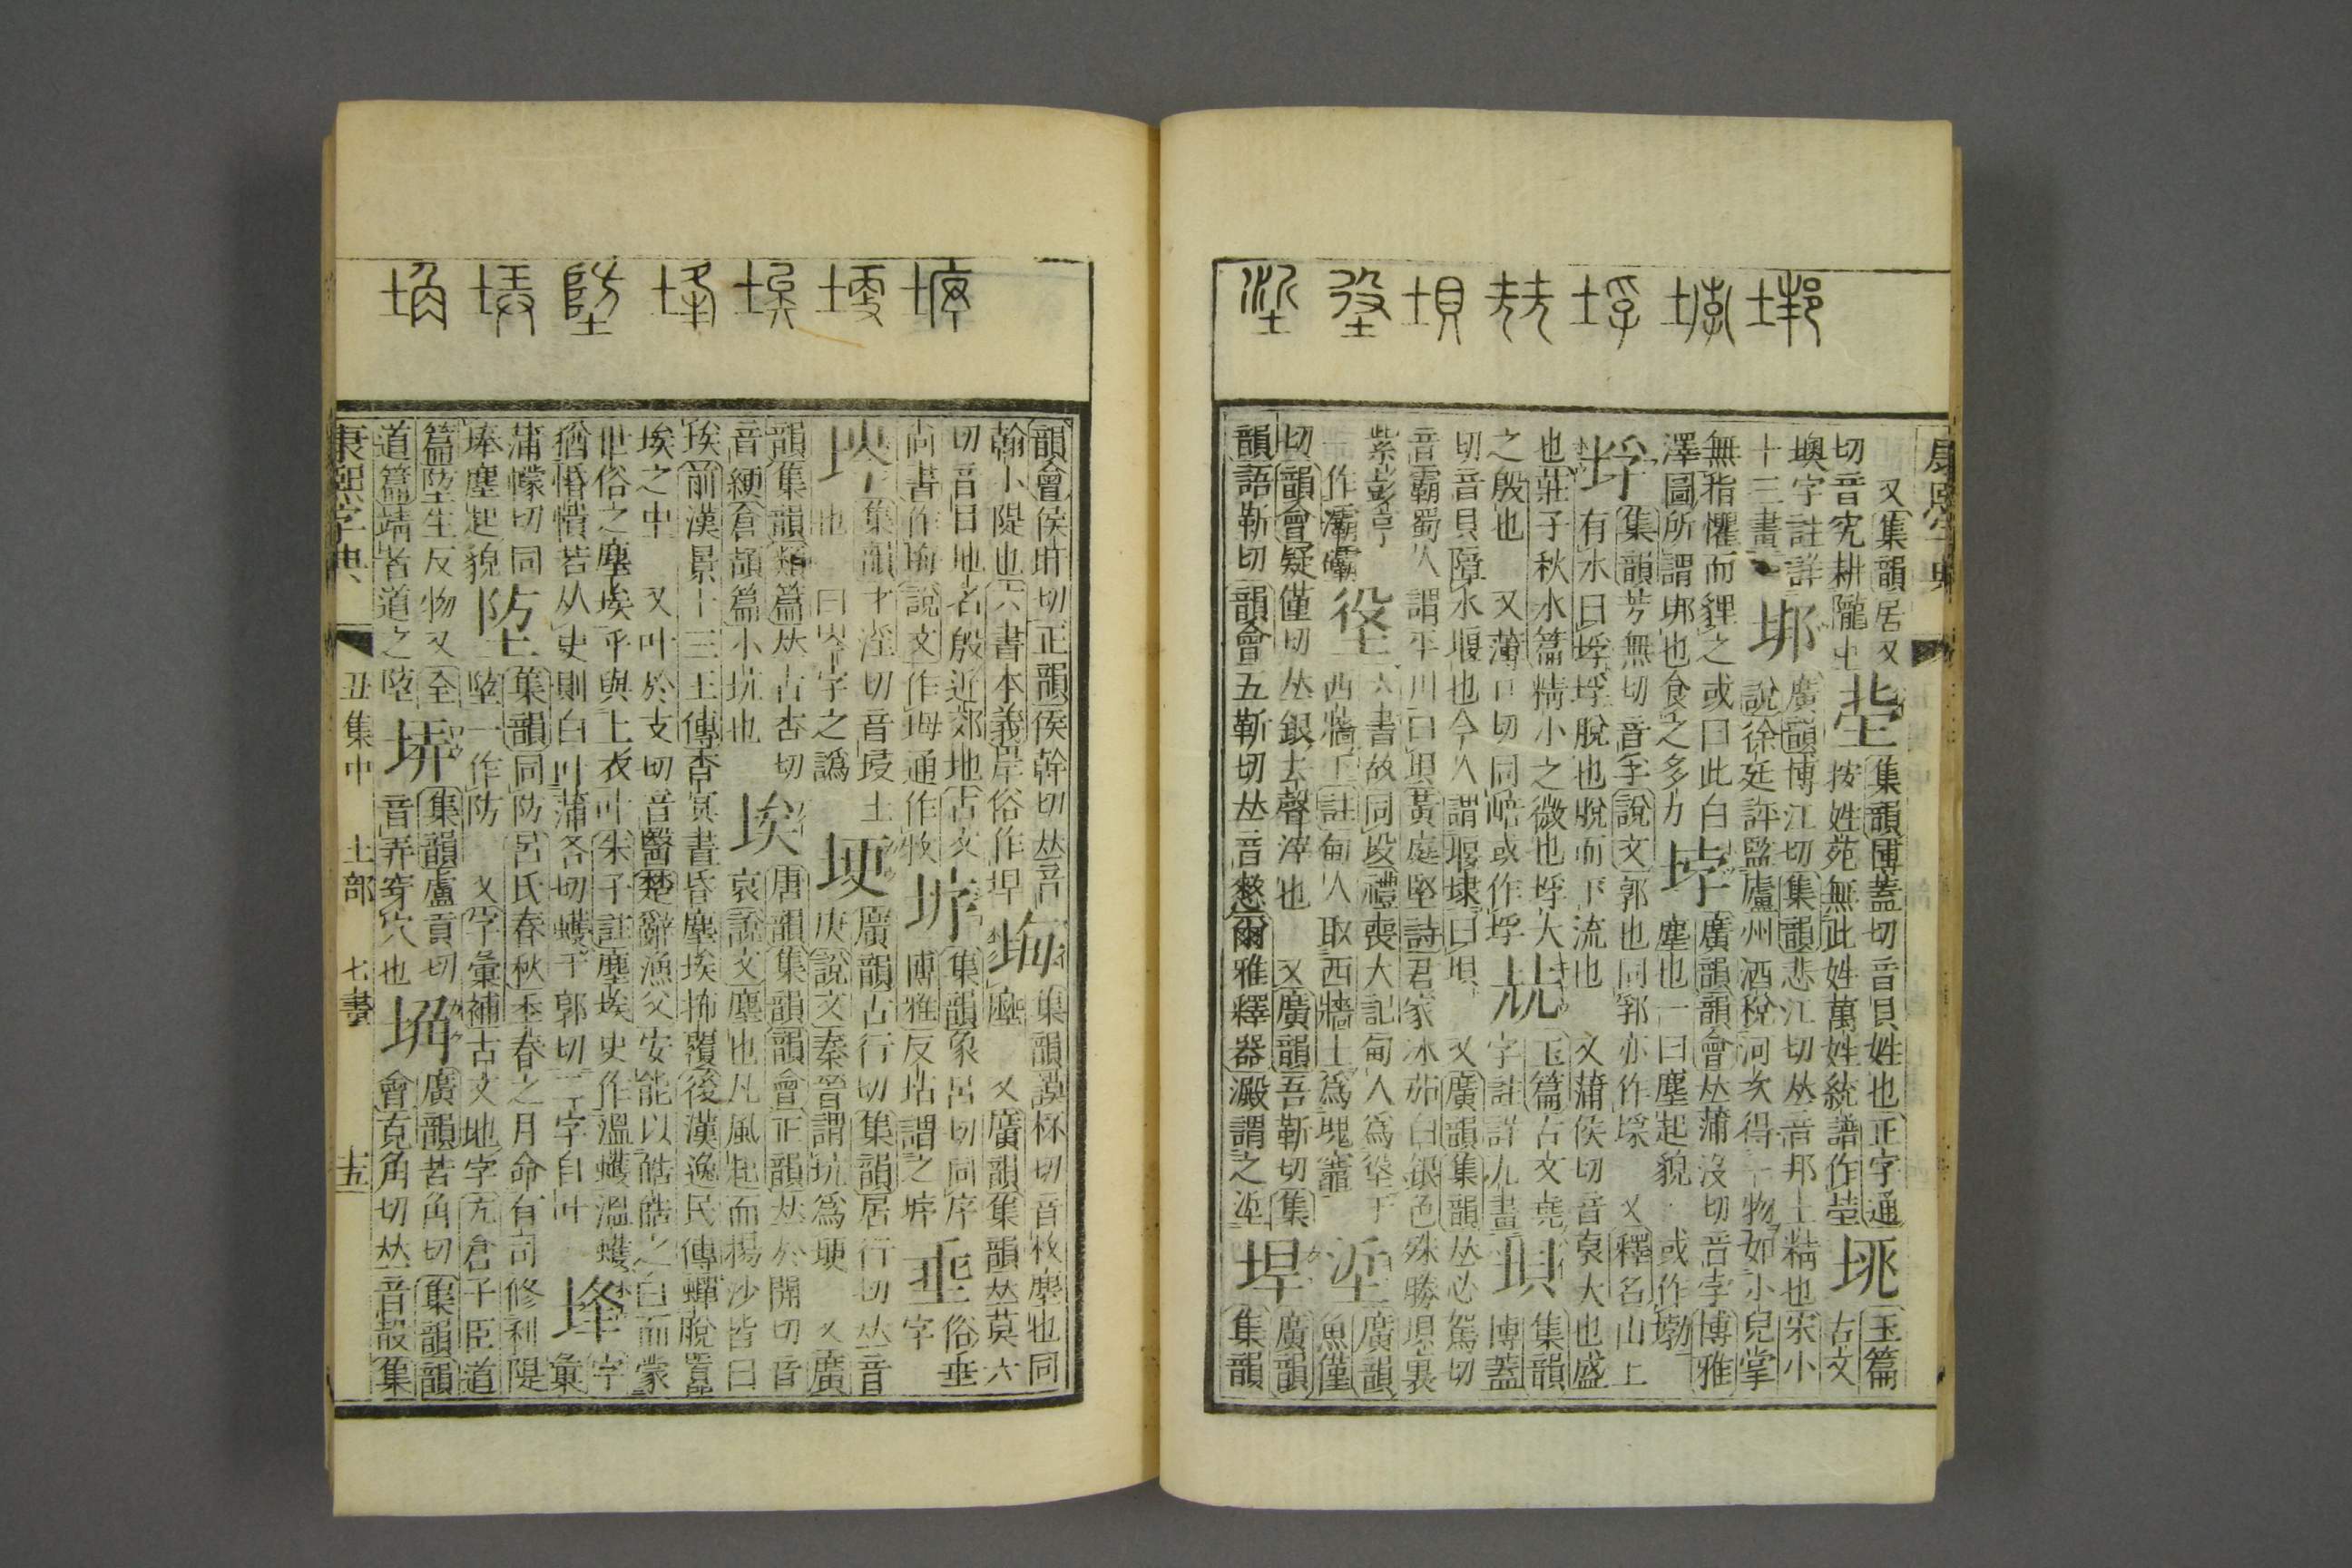 又集韻居又
切音究耕隴中
墺字註詳
十三畫
垹
廣韻博江切集韻悲江切𠀤音邦土精也宋小
說徐廷評監廬州酒稅河次得一物如小兒掌
無指懼而貍之或曰此白
澤圖所謂垹也食之多力
埻
廣韻韻會𠀤蒲沒切音孛博雅
塵也一曰塵起貌 或作㪍
垺
集韻芳無切音孚說文郭也同郛亦作㙅 又釋名山上
有水曰垺垺脫也脫而下流也 又蒲侯切音裒大也盛
也莊子秋水篇精小之微也垺大
之殷也 又薄口切同㟝或作垺
玉篇古文堯
字註詳九畫
垻
集韻
博蓋
切音貝障水堰也今人謂堰埭曰垻 又廣韻集韻𠀤必駕切
音霸蜀人謂平川曰垻黃庭堅詩君家冰茄白銀色殊勝垻裏
紫彭亨
一作灞㶚
垼
六書故同㙇禮喪大記甸人爲垼于
西牆下註甸人取西牆土爲塊竈
垽
廣韻
魚僅
切韻會疑僅切𠀤銀去聲滓也 又廣韻吾靳切集
韻語靳切韻會五靳切𠀤音憖爾雅釋器澱謂之垽
垾
廣韻
集韻
集韻博蓋切音貝姓也正字通
按姓苑無此姓萬姓統譜作𡋯
垗
玉篇
古文
韻會侯旰切正韻侯幹切𠀤音
翰小隄也六書本義岸俗作垾
坶
集韻謨杯切音枚塵也同
塺 又廣韻集韻𠀤莫六
切音目地名殷近郊地古文
尚書作坶說文作坶通作牧
垿
集韻象呂切同序
博雅反坫謂之垿
埀
俗垂
字
集韻才淫切音埐土
也 曰岑字之譌
埂
廣韻古行切集韻居行切𠀤音
庚說文秦晉謂坑爲埂 又廣
韻集韻類篇𠀤古杏切
音綆倉頡篇小坑也
埃
唐韻集韻韻會正韻𠀤於開切音
哀說文塵也凡風起而揚沙皆曰
埃前漢景十三王傳杳冥晝昏塵埃抪覆後漢逸民傳蟬脫囂
埃之中 又叶於支切音醫楚辭漁父安能以皓皓之白而蒙
世俗之塵埃乎與上衣叶朱子註塵埃史作溫蠖溫蠖
猶惛憒若从史則白叶蒲各切蠖于郭切二字自叶
埄
字
彙
蒲幪切同
埲塵起貌
埅
集韻同防呂氏春秋季春之月命有司修利隄
埅一作防 又字彙補古文地字亢倉子臣道
篇埅生反物又全
道篇靖者道之埅
㟖
集韻盧貢切
音弄穿穴也
埆
廣韻苦角切集韻韻
會克角切𠀤音殼集
康熙字典
丑集中 土部 七畫
十五